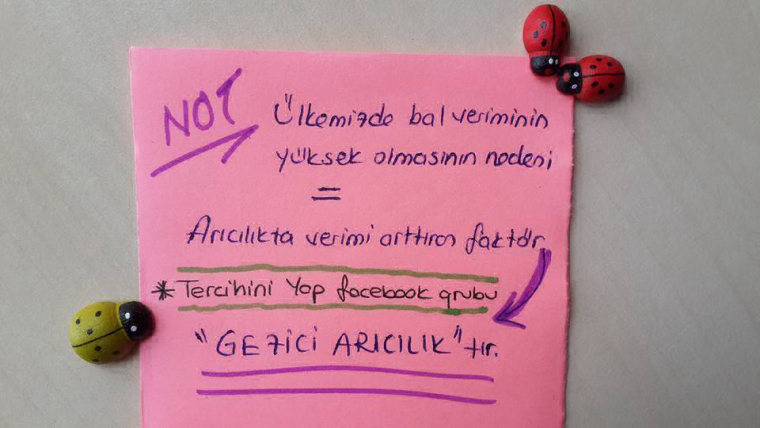 NOT
Ülkemizde bal veriminin
yüksek olmasının nedeni
=
Arıcılıkta verimi arttıran faktör
* Tercihini Yap facebook grubu
"GEZİCİ ARICILIK" tır.